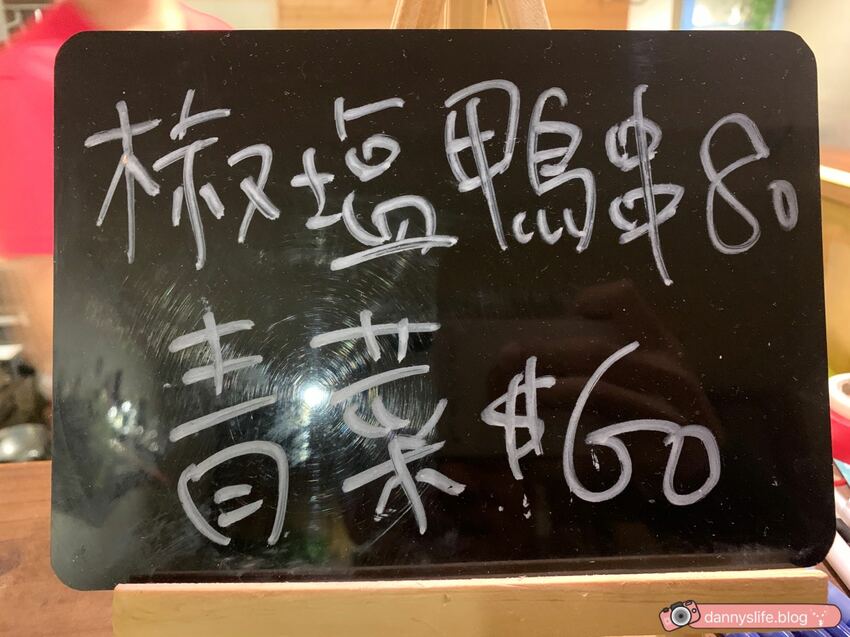 椒塩鴨串80
青菜$60
dannyslife.blog